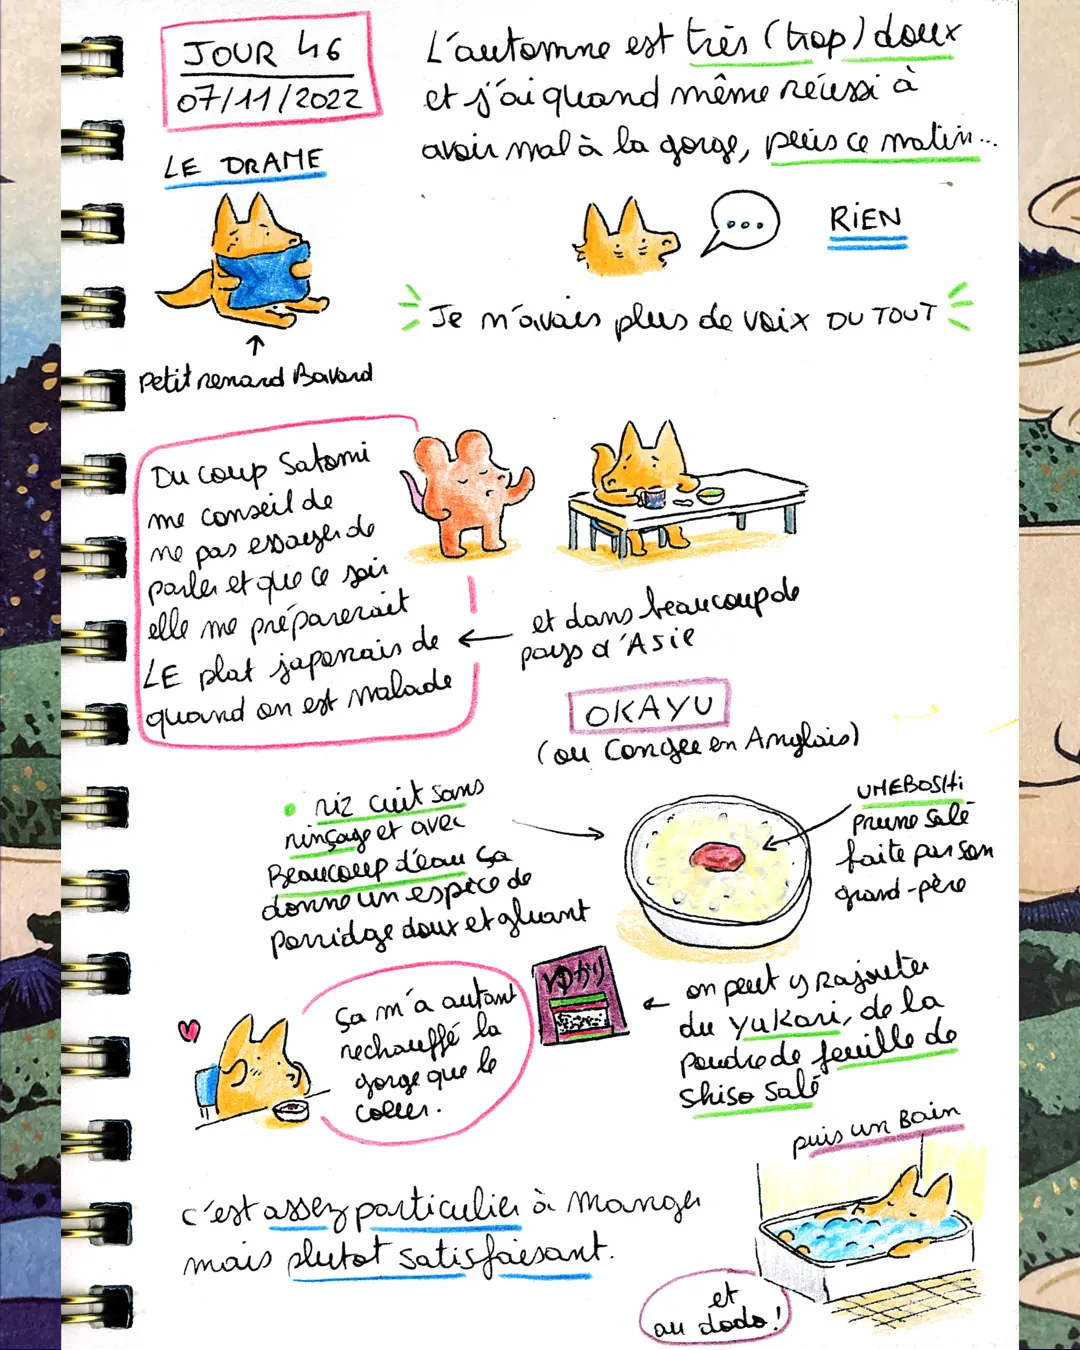 JOUR 46
07/11/2022
L'automne est très (trop) doux
et j'ai quand même réussi à
avoir mal à la gorge, puis ce matin...
LE DRAME
...
RIEN
Je n'avais plus de voix DU TOUT
Petit renard Bavard
Du coup Satomi
me conseil de
ne pas essayer de
parler et que ce soir
elle me préparerait
LE plat japonais de
quand on est malade
et dans beaucoup de
pays d'Asie
OKAYU
(ou Congee en Anglais)
riz cuit sans
rinçage et avec
Beaucoup d'eau ça
donne un espèce de
porridge doux et gluant
UMEBOSHI
prune salé
faite par son
grand-père
ゆかり
on peut y rajouter
du Yukari, de la
poudre de feuille de
shiso salé
ça m'a autant
réchauffé la
gorge que le
coeur.
puis un Bain
c'est assez particulier à manger
mais plutot satisfaisant.
et
au dodo!